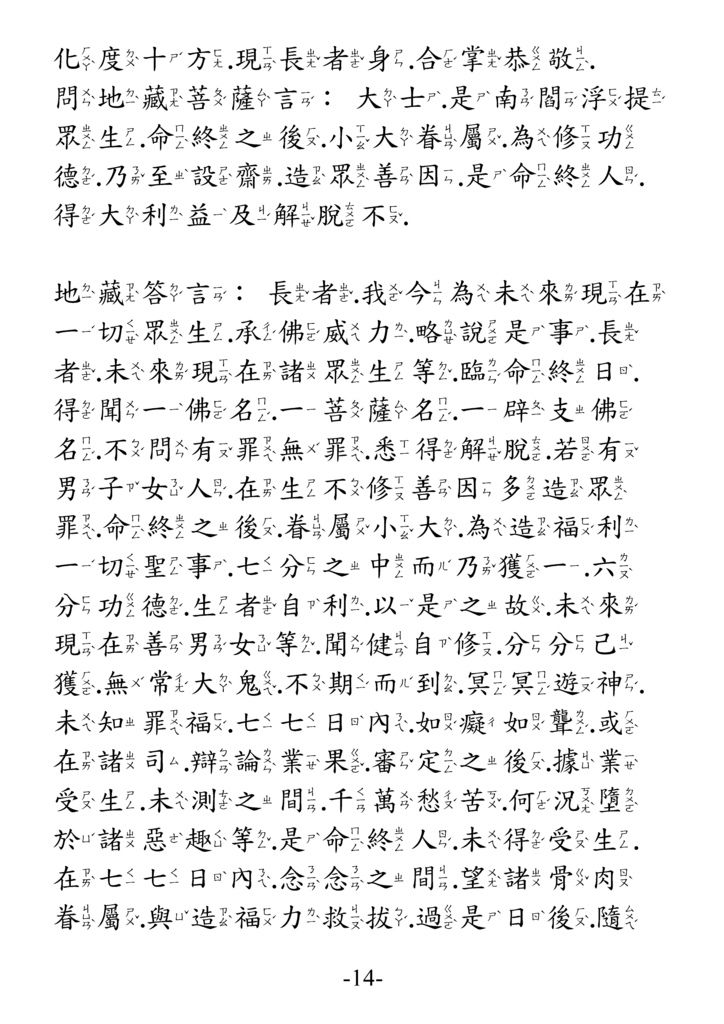 化度十方.現長者身.合掌恭敬.
問地藏菩薩言： 大士.是南閻浮提
眾生.命終之後.小大眷屬.為修功
德.乃至設齋.造眾善因.是命終人.
得大利益及解脫不.
地藏答言： 長者.我今為未來現在
一切眾生.承佛威力.略說是事.長
者.未來現在諸眾生等.臨命終日.
得聞一佛名.一菩薩名.一辟支佛
名.不問有罪無罪.悉得解脫.若有
男子女人.在生不修善因多造眾
罪.命終之後.眷屬小大.為造福利
一切聖事.七分之中而乃獲一.六
分功德.生者自利.以是之故.未來
現在善男女等.聞健自修.分分己
獲.無常大鬼.不期而到.冥冥遊神.
未知罪福.七七日內.如癡如聾.或
在諸司.辯論業果.審定之後.據業
受生.未測之間.千萬愁苦.何況墮
於諸惡趣等.是命終人.未得受生.
在七七日內.念念之間.望諸骨肉
眷屬.與造福力救拔.過是日後.隨
-14-